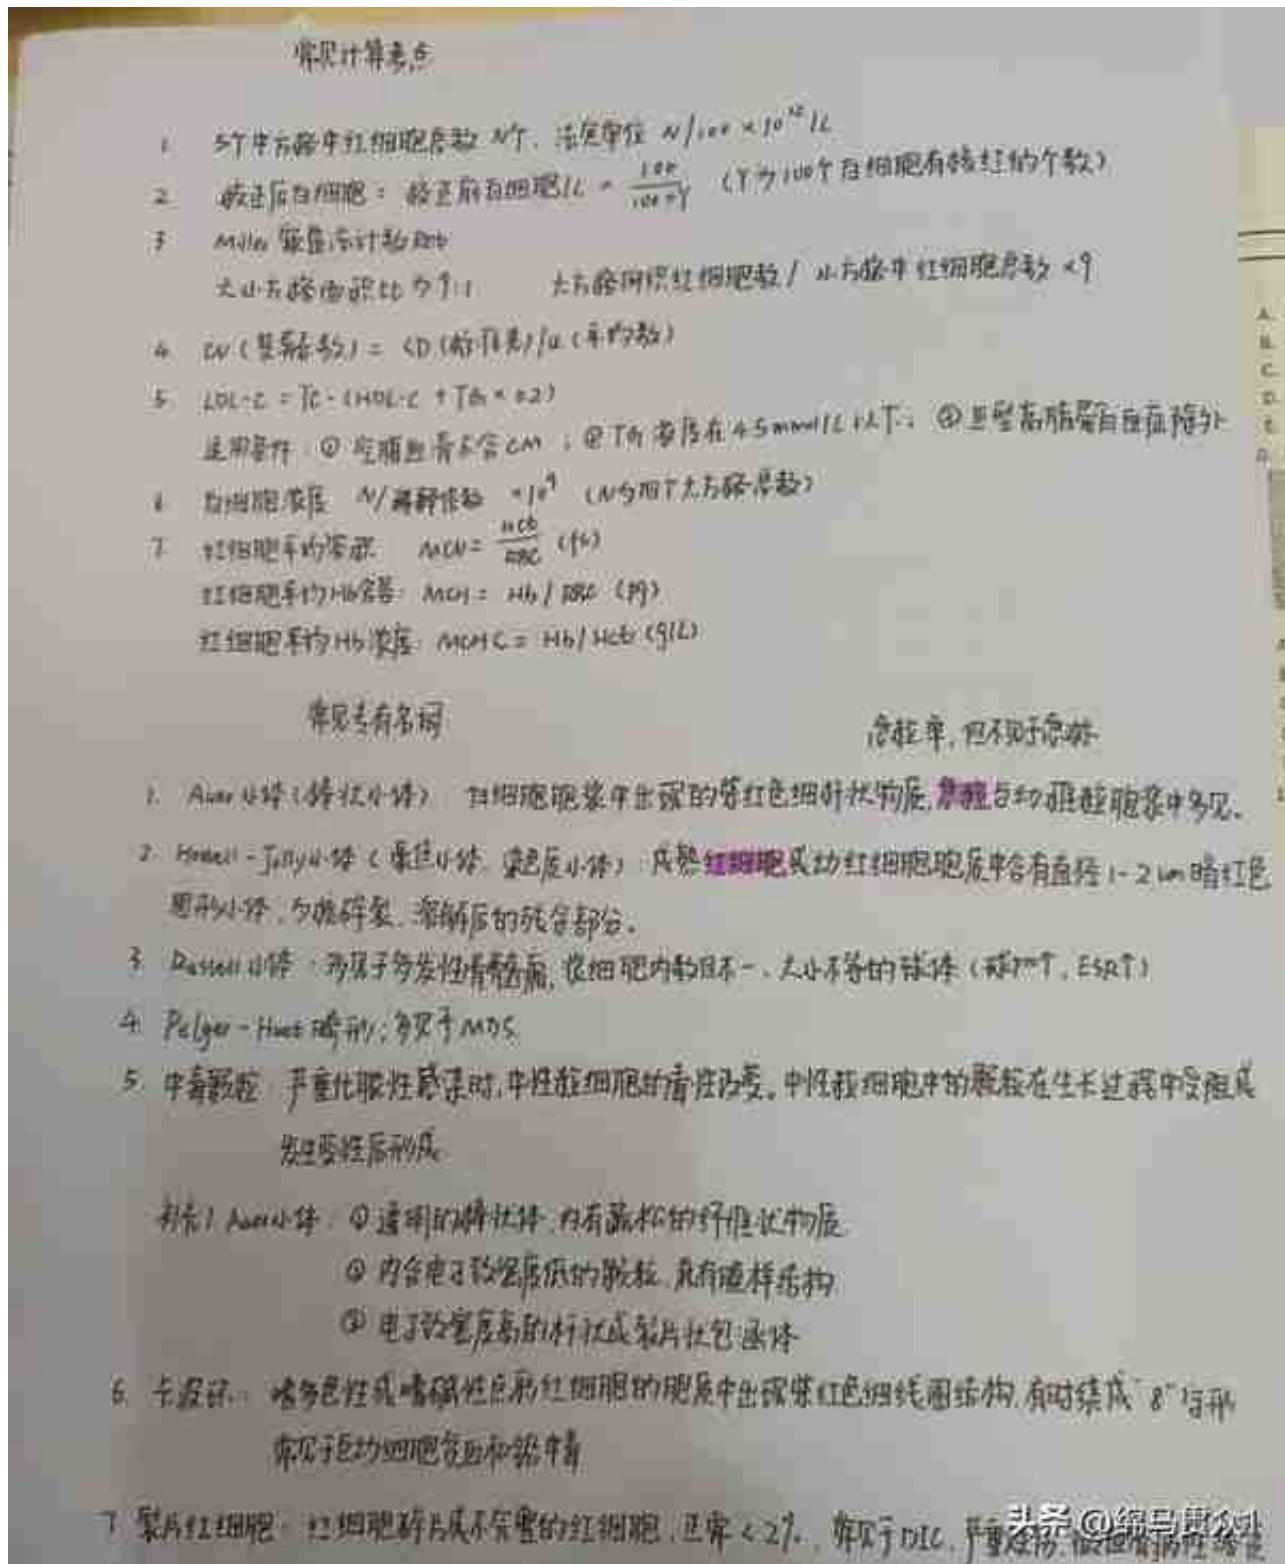 常见计算考点
1 5个中方格中红细胞总数 N个, 法定单位 N/100 × 10¹²/L
2 校正后白细胞: 校正前白细胞/L × 100/100+Y (Y为100个白细胞有核红的个数)
3 Miller 窥盘法计数Ret
大小方格面积比为9:1 大方格网织红细胞数/小方格中红细胞总数×9
4 CV(变异系数) = SD(标准差)/u(平均数)
5 LDL-C = TC-(HDL-C + TG × 0.2)
适用条件: ① 空腹血清不含CM; ② TG浓度在4.5mmol/L以下; ③ III型高脂蛋白血症除外
6 白细胞浓度 N/稀释倍数 ×10⁹ (N为四个大方格总数)
7 红细胞平均容积 MCV = Hct/RBC (fL)
红细胞平均Hb含量: MCH = Hb/RBC (pg)
红细胞平均Hb浓度: MCHC = Hb/Hct (g/L)
常见专有名词
急粒单, 但不见于急淋
1. Auer小体(棒状小体) 白细胞胞浆中出现的紫红色细杆状物质, 急粒白幼稚粒胞浆中多见。
2. Howell-Jolly小体(豪焦小体、染色质小体): 成熟红细胞或幼红细胞胞质中含有直径1-2um暗红色
圆形小体, 为核碎裂、溶解后的残余部分。
3. Russell小体: 多见于多发性骨髓瘤, 浆细胞内数目不一、大小不等的球体(球蛋白↑, ESR↑)
4. Pelger-Huet畸形: 多见于MDS
5. 中毒颗粒: 严重化脓性感染时, 中性粒细胞的毒性改变。中性粒细胞中的颗粒在生长过程中受阻或
发生变性后形成
补充1 Auer小体: ① 透明的棒状体, 内有疏松的纤维状物质
② 内含电子致密度低的颗粒, 具有管样结构
③ 电子致密度高的杆状或裂片状包涵体
6. 卡波环: 嗜多色性或嗜碱性点彩红细胞的胞质中出现紫红色细线圈结构, 有时绕成"8"字形
常见于巨幼细胞贫血和铅中毒
7 裂片红细胞: 红细胞碎片或不完整的红细胞, 正常<2%. 常见于DIC, 严重烧伤
头条 @